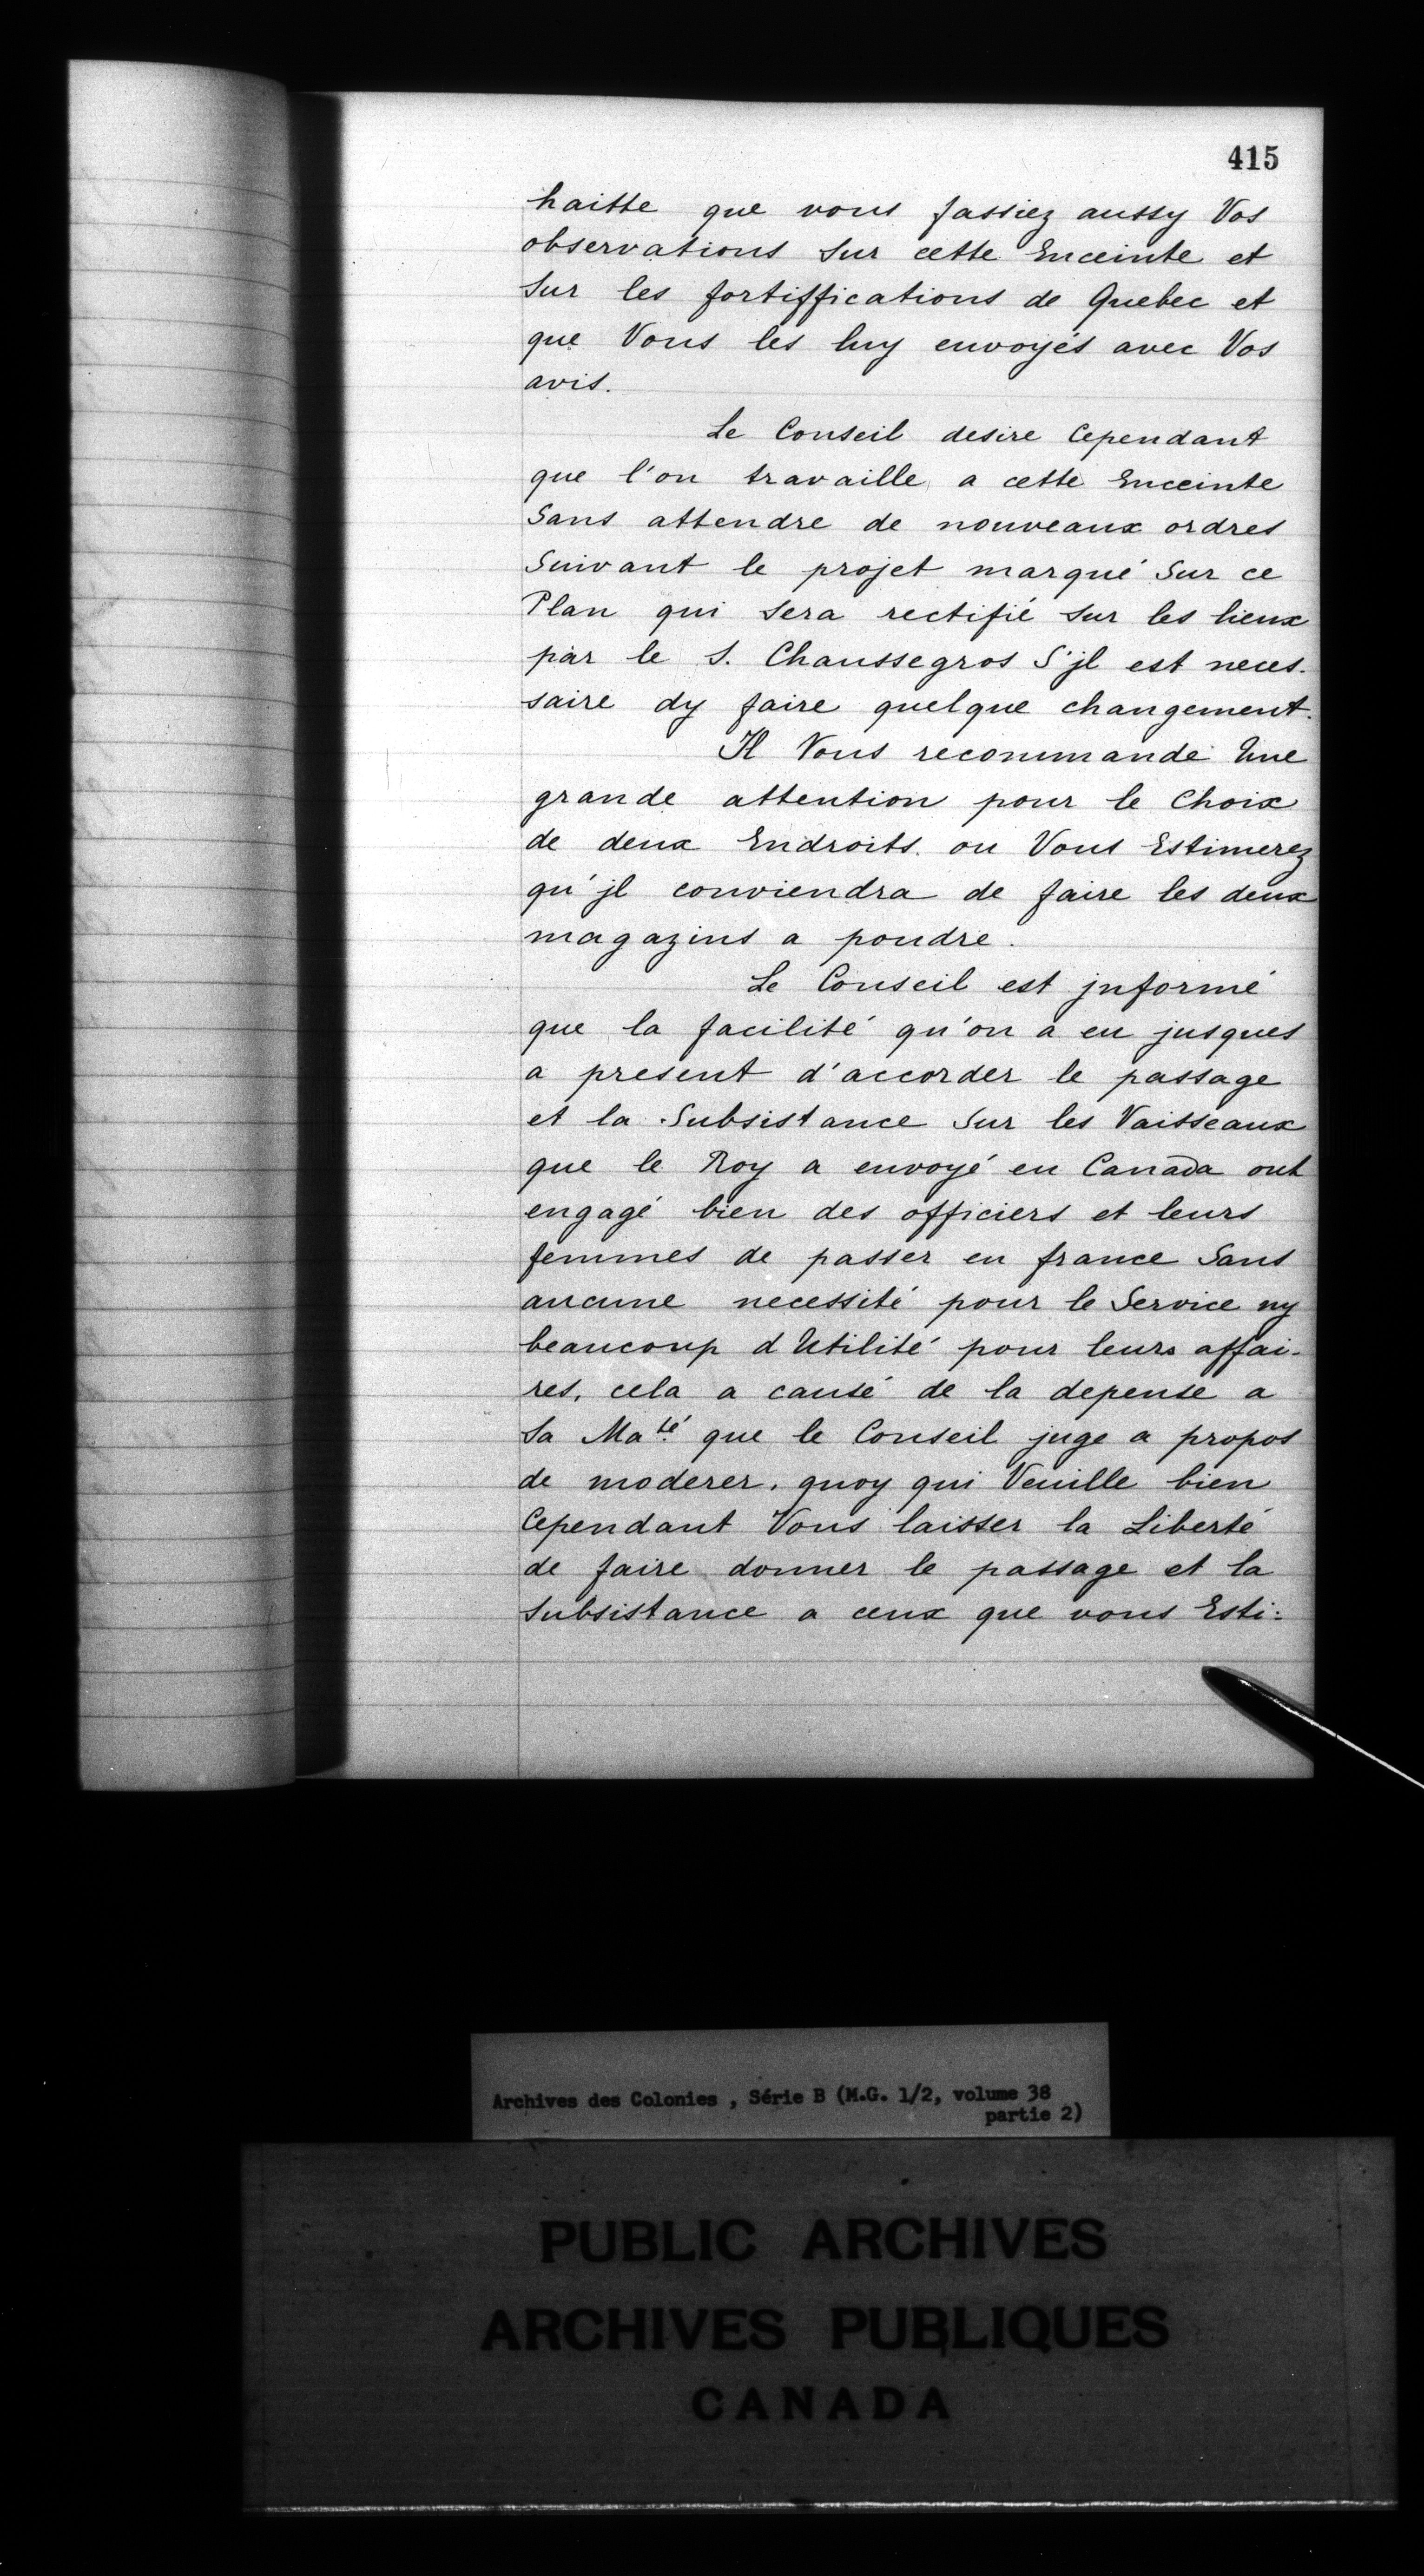 415
haitte que vous fassiez aussy Vos
observations sur cette Enceinte et
sur les fortiffications de Quebec et
que Vous les luy envoyés avec Vos
avis.
Le Conseil desire Cependant
que l'on travaille a cette Enceinte
Sans attendre de nouveaux ordres
Suivant le projet marqué Sur ce
Plan qui sera rectifié sur les lieux
par le S. Chaussegros S'jl est neces-
saire dy faire quelque changement.
Il Vous recommande Une
grande attention pour le Choix
de deux Endroits. ou Vous Estimerez
qu'jl conviendra de faire les deux
magazins a poudre.
Le Conseil est jnformé
que la facilité qu'on a eu jusques
a present d'accorder le passage
et la Subsistance Sur les Vaisseaux
que le Roy a envoyé en Canada ont
engagé bien des officiers et leurs
femmes de passer en france Sans
aucune necessité pour le Service ny
beaucoup d Utilité pour leurs affai-
res, cela a causé de la depense a
Sa Ma.té que le Conseil juge a propos
de moderer. quoy qui Veuille bien
Cependant Vous laisser la Liberté
de faire donner le passage et la
subsistance a ceux que vous Esti:
Archives des Colonies , Série B (M.G. 1/2, volume 38
partie 2)
PUBLIC ARCHIVES
ARCHIVES PUBLIQUES
CANADA